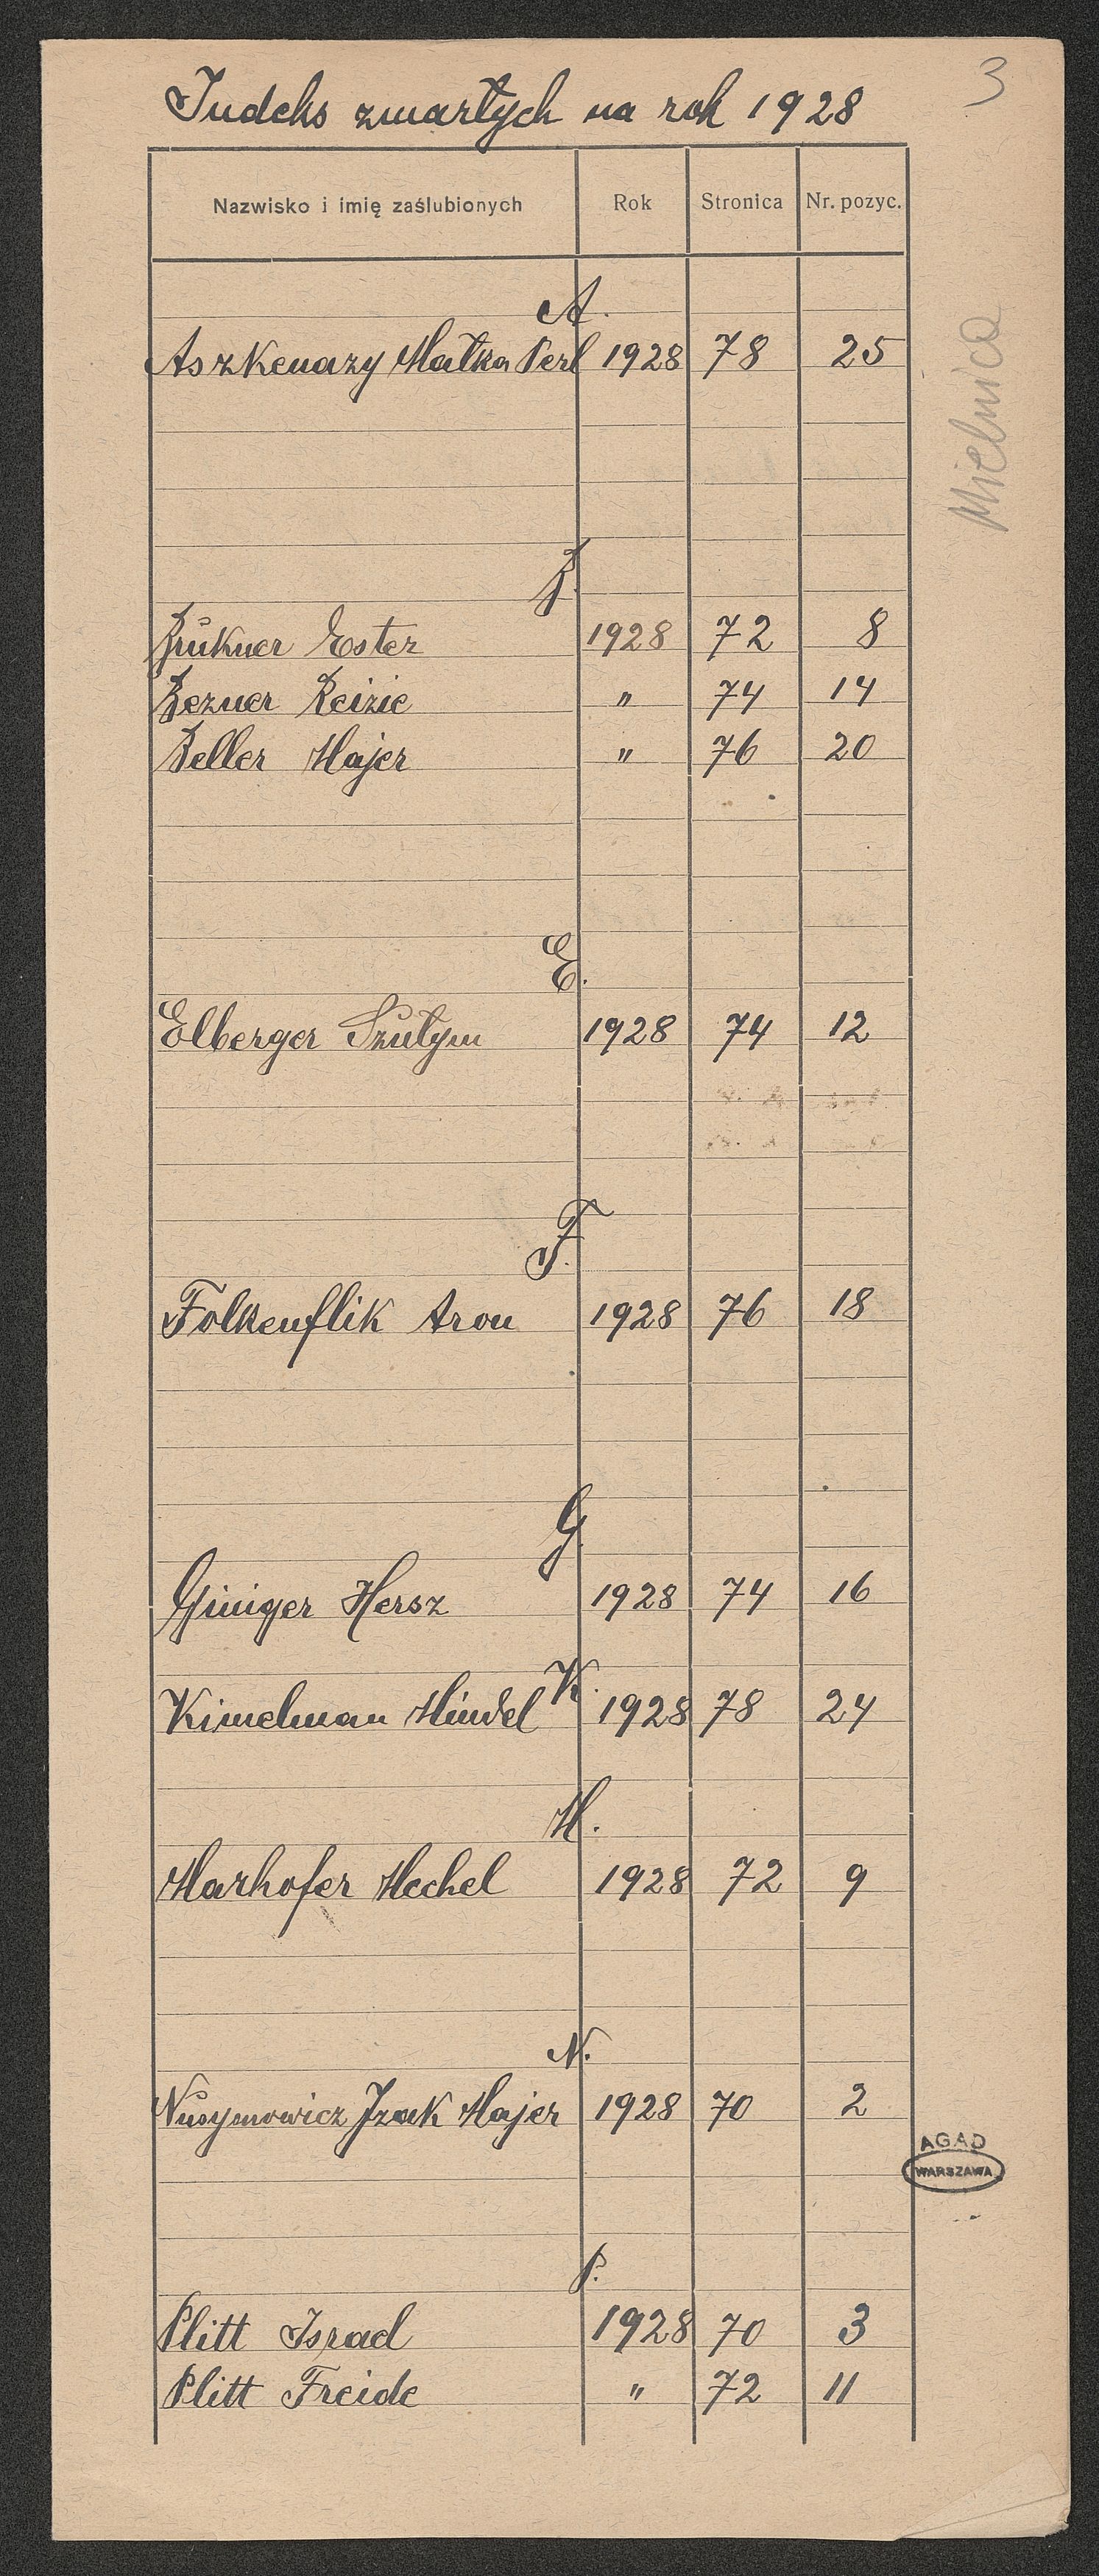 3
Indeks zmarłych na rok 1928
Nazwisko i imię zaślubionych Rok Stronica Nr. pozyc.
Mielnica
A.
Aszkenazy Małka Perl 1928 78 25
B.
Brükner Ester 1928 72 8
Bezner Reizie " 74 14
Beller Majer " 76 20
E.
Elberger Szulym 1928 74 12
F.
Folkenflik Aron 1928 76 18
G
Giniger Hersz 1928 74 16
K.
Kimelman Hindel 1928 78 24
M.
Marhofer Mechel 1928 72 9
N.
Nusymowicz Izak Majer 1928 70 2
AGAD
WARSZAWA
P.
Plitt Israel 1928 70 3
Plitt Freide " 72 11